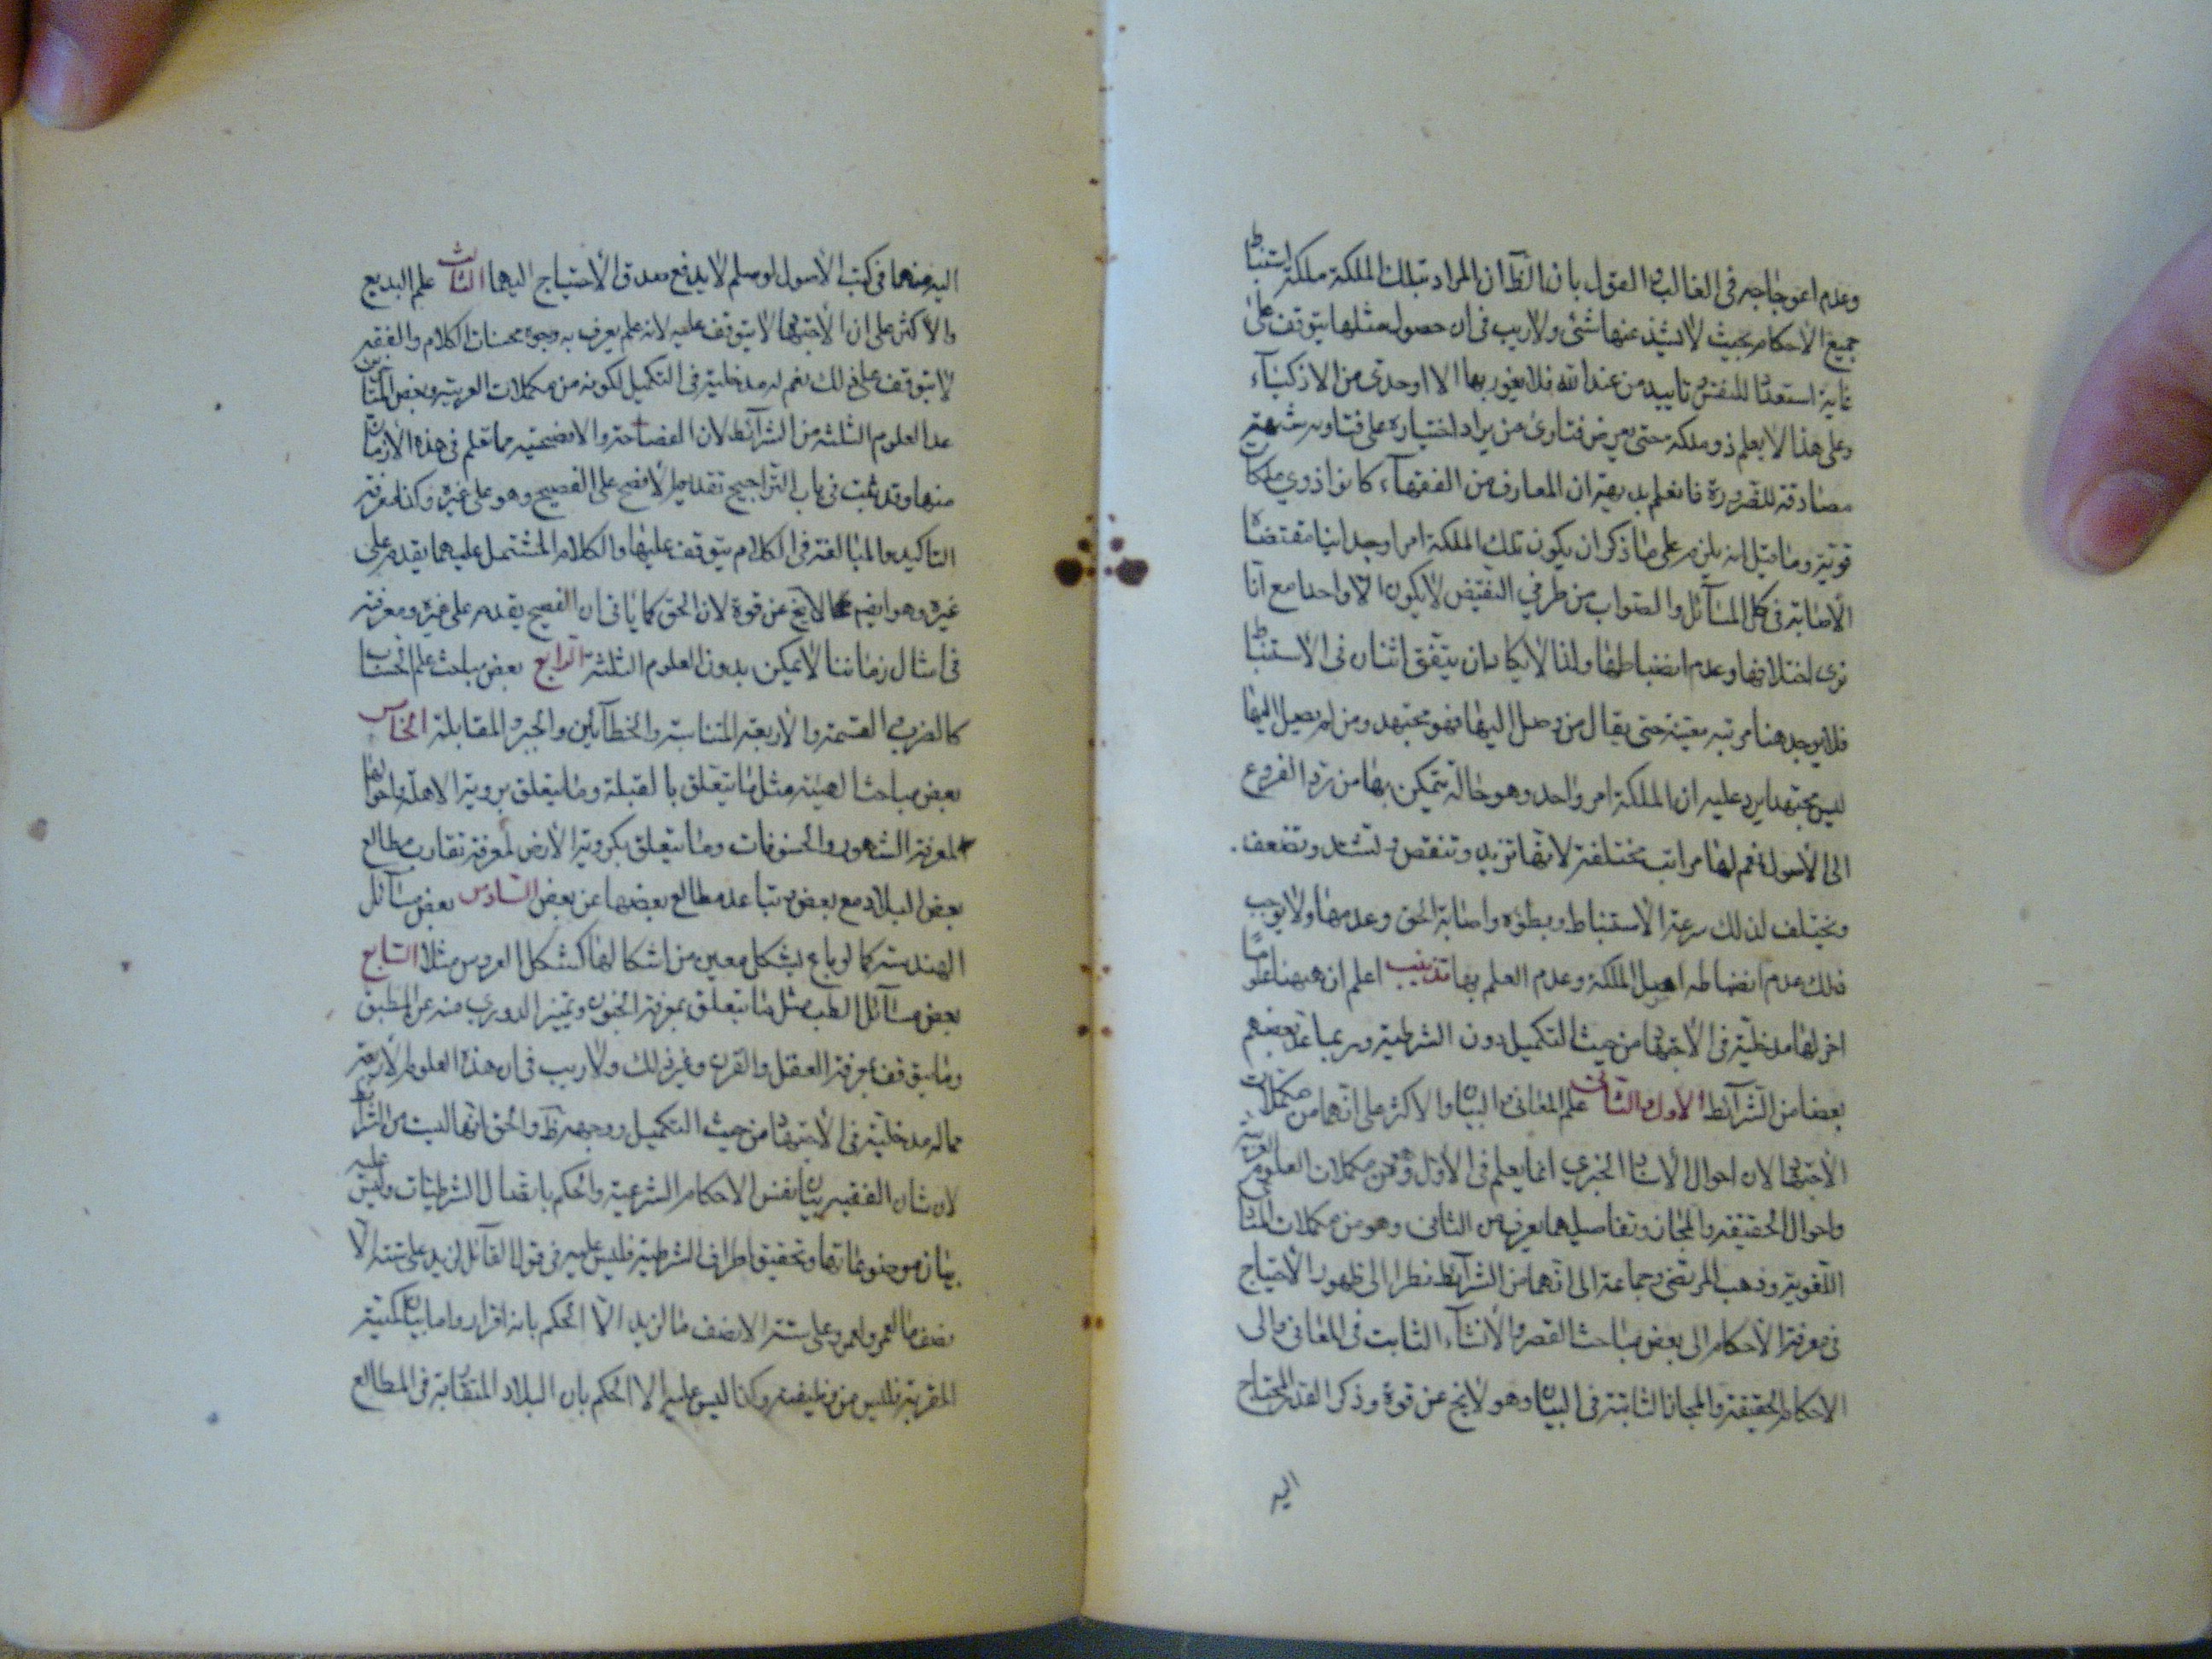 وعدم اعوجاجه في الغالب القول بان الظان المراد بتلك الملكة ملكة استنباط
جميع الاحكام بحيث لا يشذ عنها شئ ولا ريب في ان حصول مثلها يتوقف على
غاية استعداد للنفس تاييد من عند الله فلا يفوز بها الا اوحدى من الاذكياء
وعلى هذا لا يعلم ذو ملكة حتى من فتاوى من يراد اختياره على فتاويه
مصادقة للضرورة فانا نعلم بديهة ان المعارف من الفقهاء كانوا ذوي ملكات
قوية وما قيل انه يلزم على ما ذكر ان يكون تلك الملكة امرا وجدانيا مقتضاه
الاصابة في كل المسائل والصواب من طرفي النقيض لا يكون الا واحدا مع انا
نرى اختلافها وعدم انضباطها ولذا لا يكاد ان يتفق اثنان في الاستنباط
فلا يوجد هنا مرتبه معينة حتى يقال من وصل اليها فهو مجتهد ومن لم يصل اليها
ليس مجتهدا يرد عليه ان الملكة امر واحد وهو حالة يتمكن بها من رد الفروع
الى الاصول نعم لها مراتب مختلفة لانها تزيد وتنقص وتشتد وتضعف.
ويختلف لذلك سرعة الاستنباط وبطؤه واصابة الحق وعدمها ولا يوجب
ذلك عدم انضباط اصل الملكة وعدم العلم بها تذنيب اعلم ان ههنا علوما
اخر لها مدخلية في الاجتهاد من حيث التكميل دون الشرطية وربما عد بعضهم
بعضا من الشرائط الاول والثاني علم المعاني والبيان والاكثر على انهما من مكملات
الاجتهاد لان احوال الاسناد الخبري انما يعلم في الاول وهو من مكملات العلوم العربية
واحوال الحقيقة والمجاز وتفاصيلهما يعرف من الثاني وهو من مكملات
اللغوية وذهب المرتضى وجماعة الى انهما من الشرائط نظرا الى ظهور الاحتياج
في معرفة الاحكام الى بعض مباحث القصر والانشاء الثابت في المعاني والى
الاحكام الحقيقة والمجاز الثابتة في البيان وهو لا يخ عن قوة وذكر القدر المحتاج
اليه
اليه منهما في كتب الاصول لو سلم لا يدفع صدق الاحتياج اليهما الثالث علم البديع
والاكثر على ان الاجتهاد لا يتوقف عليه لانه علم يعرف به وجوه محسنات الكلام والفقه
لا يتوقف على ذلك نعم له مدخلية في التكميل لكونه من مكملات العربية وبعض المتاخرين
عد العلوم الثلثة من الشرائط لان الفصاحة والافصحية مما تعلم في هذه الازمان
منها وقد ثبت في باب التراجيح تقديم الافصح على الفصيح وهو على غيره وكذا معرفة
التاكيد والمبالغة في الكلام يتوقف عليها والكلام المشتمل عليهما يقدم على
غيره وهو ايضم لا يخ عن قوة لان الحق كما ياتي ان الفصيح يقدم على غيره ومعرفته
في امثال زماننا لا يمكن بدون العلوم الثلثة الرابع بعض مباحث علم الحساب
كالضرب والقسمة والاربعة المتناسبة والخطائين والجبر والمقابلة الخامس
بعض مباحث الهيئة مثل ما يتعلق بالقبلة وما يتعلق برؤية الاهلة واحوالها
لمعرفة الشهور والخسوفات وما يتعلق بكروية الارض لمعرفة تقارب مطالع
بعض البلاد مع بعض وتباعد مطالع بعضها عن بعض السادس بعض مسائل
الهندسة كما لو باع بشكل معين من اشكالها كشكل العروس مثلا السابع
بعض مسائل الطب مثل ما يتعلق بمعرفة الجنون وتميز الدوري منه عن المطبق
وما يتوقف بمعرفة العقل والقرن وغير ذلك ولا ريب في ان هذه العلوم الاربعة
مما له مدخلية في الاجتهاد من حيث التكميل ووجهه ظ والحق انها ليست من الشرائط
لان شان الفقيه بيان نفس الاحكام الشرعية والحكم باتصال الشرطيات وليس عليه
بيان موضوعاتها وتحقيق اطراف الشرطية فليس عليه في قول القائل لزيد على ستة الا
نصف ما لعمرو ولعمرو على ستة الا نصف ما لزيد الا الحكم بانه اقرار واما بيان كمية
المقر به فليس من وظيفته وكذا ليس عليه الا الحكم بان البلاد المتقاربة في المطالع